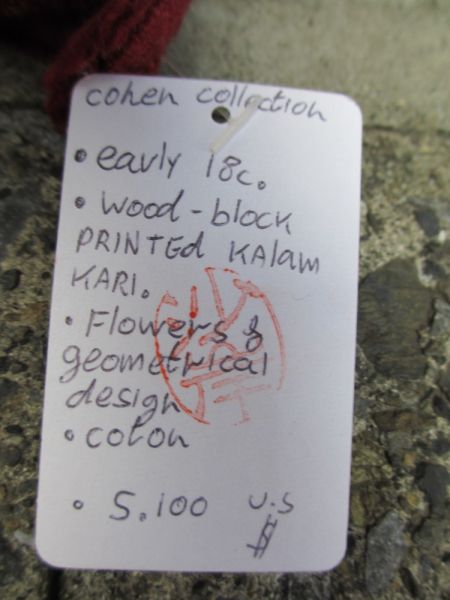 cohen collection
• early 18c.
• wood-block
PRINTEd KAlam
KARI.
• Flowers &
geometrical
design
• coton
• 5.100 U.S
$